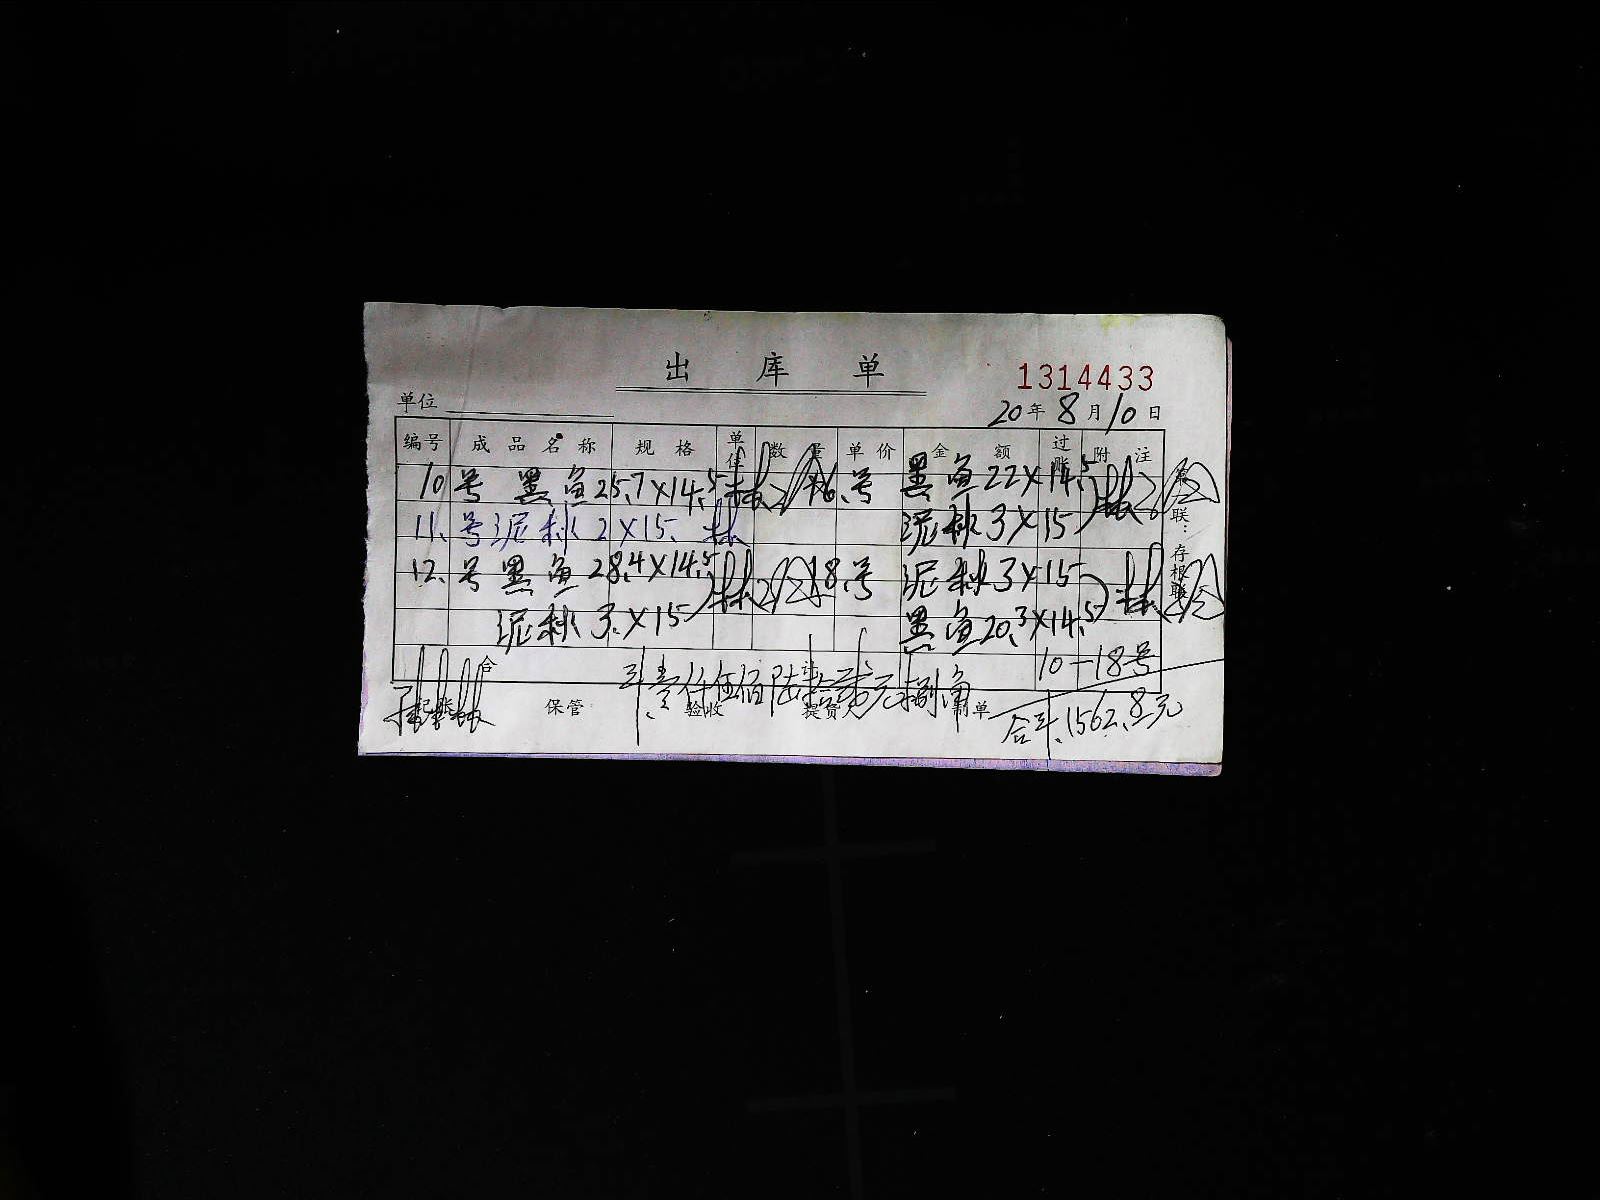 出 库 单
1314433
单位 20年8月10日
编号 成品名称 规格 单位 数量 单价 金额 过账 附注
10号 黑鱼25.7×14.5 16.号 黑鱼22×14.5
11.号泥秋2×15. 林 泥秋3×15
12.号 黑鱼28.4×14.5 18.号 泥秋3×15
泥秋3.×15 黑鱼20.3×14.5
合 计 壹仟伍佰陆拾贰元捌角 10-18号
记账 保管 验收 提货人 制单
合计.1562.8元
第一联：存根联